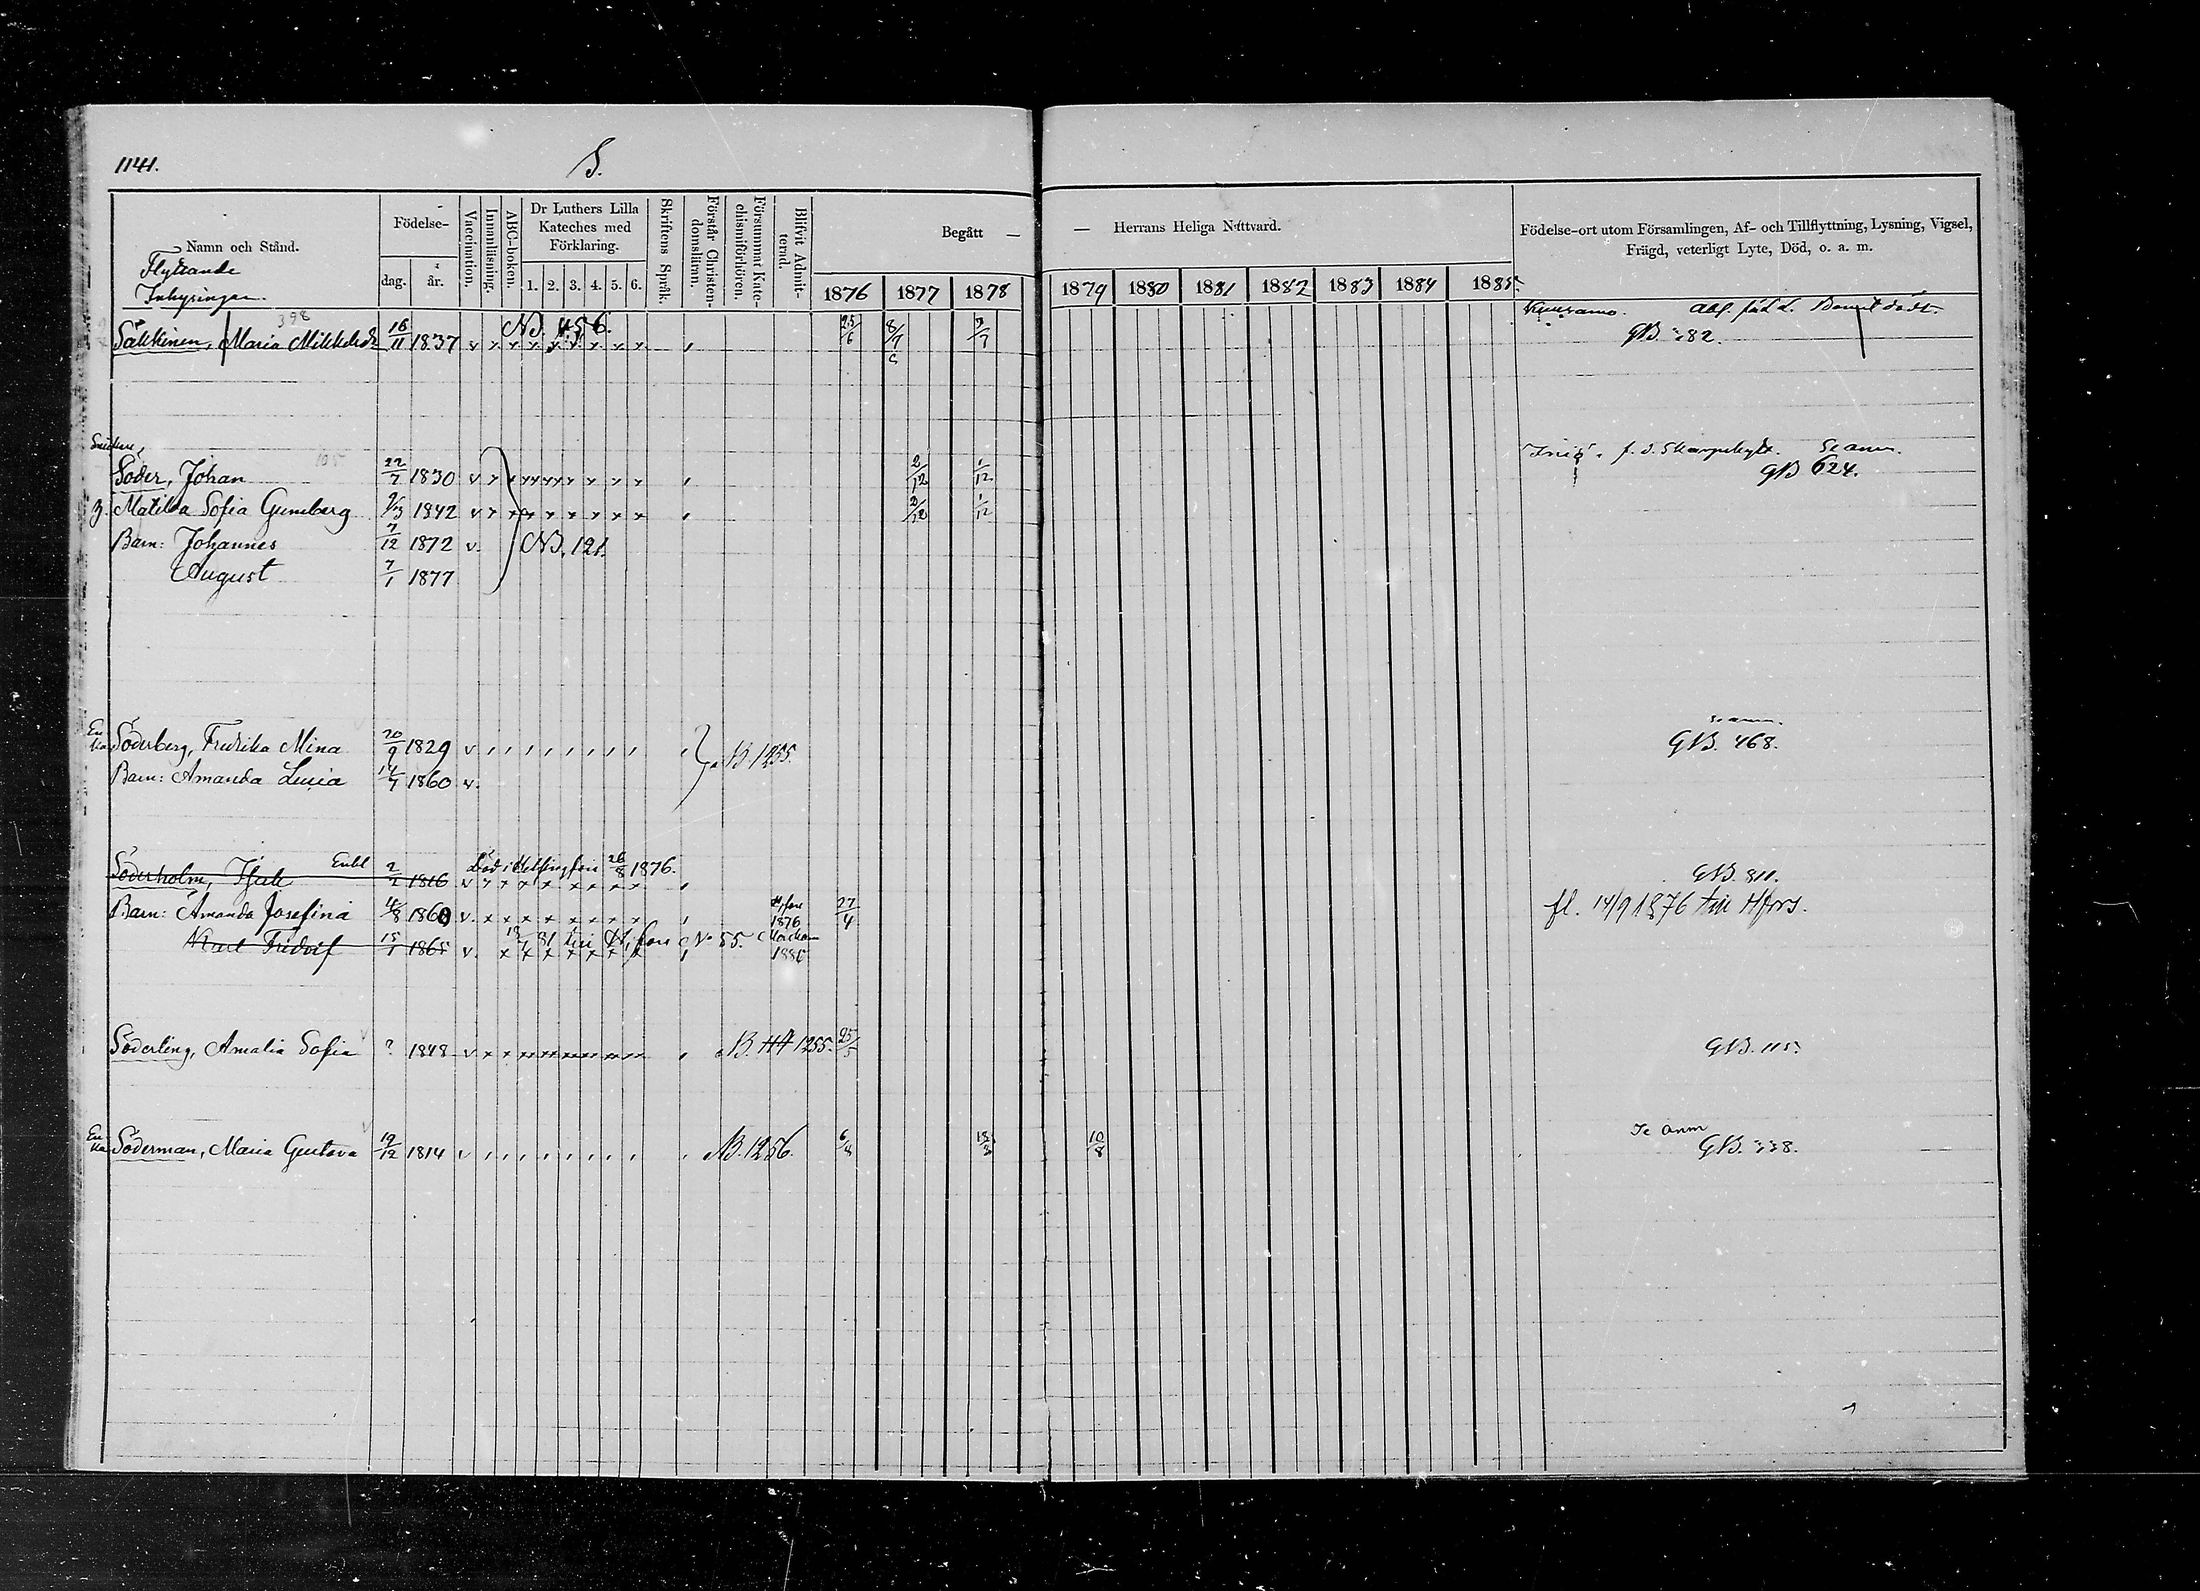 1141.
S.
Namn och Stånd.
Flyttande
Inhysingar.
Födelse-
dag. år.
Vaccination.
Innanläsning.
ABC-boken.
Dr Luthers Lilla
Kateches med
Förklaring.
1. 2. 3. 4. 5. 6.
Skriftens Språk.
Förstår Christen-
domsläran.
Försummat Kate-
chismiförhören.
Blifvit Admit-
terad.
Begått —
— Herrans Heliga Nattvard.
1876 1877 1878 1879 1880 1881 1882 1883 1884 1885.
Födelse-ort utom Församlingen, Af- och Tillflyttning, Lysning, Vigsel,
Frägd, veterligt Lyte, Död, o. a. m.
398
NB. 456.
Säkkinen, Maria Mikkelsdr 16/11 1837 v x x x x x x x x 25/6 8/7 7/7
Kuusamo.
GB 382.
Söder, Johan 22/7 1830 v x x x x x x x x 2/12 1/12
f. d. Skarpskytt. Se anm.
GB 624.
Matilda Sofia Gumberg 1842 v x x x x x x x x 2/12 1/12
Barn: Johannes 7/12 1872 v. NB. 121.
August 7/1 1877
Enka Söderberg, Fredrika Mina 20/9 1829 v
B. 1255.
Se anm.
GB. 468.
Barn: Amanda Lucia 14/7 1860 v.
Söderholm, Enkl 2/2 1816 v x x x x x x x x
Död i Helsingfors 26/8 1876.
GB. 811.
Barn: Amanda Josefina 4/8 1860 v. x x x x x x x x H,fors 1876 27/4
fl. 14/9 1876 till Hfors.
Karl Fridolf 15/1 1865 v. x x x x x x x
/81 till H,fors No 55.
Söderling, Amalia Sofia ? 1848 v x x x x x x x x B. 1255. 25/5
GB. 115.
Enka Söderman, Maria Gustava 19/12 1814 v B. 1256. 6/8 10/8
Se anm
GB. 338.